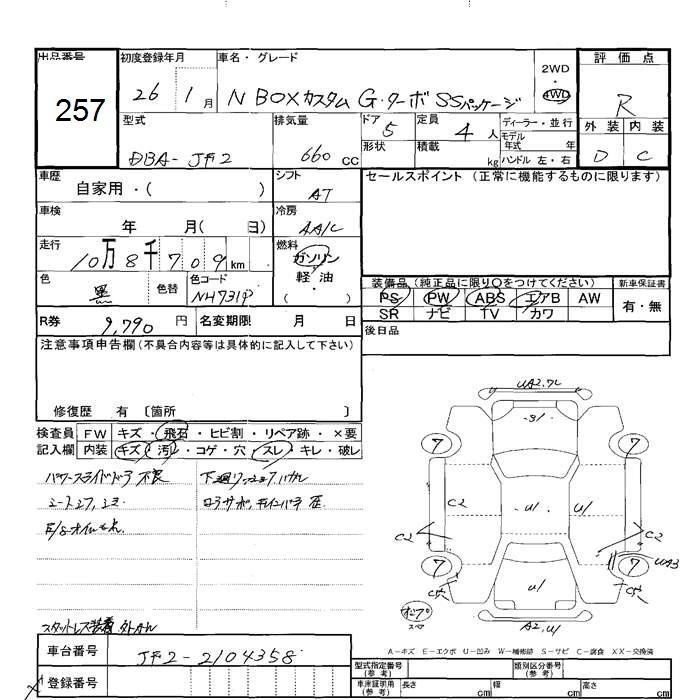 出品番号
257
初度登録年月
26 1月
車名・グレード
N BOXカスタム G・ターボSSパッケージ
2WD
4WD
評価点
R
外装 内装
D C
型式
DBA-JF2
排気量
660 CC
ドア
5
形状
定員
4人
積載
kg
ディーラー・並行
モデル年式 年
ハンドル 左・右
車歴
自家用・( )
シフト
AT
セールスポイント (正常に機能するものに限ります)
車検
年 月( 日)
冷房
AA/C
走行
10万8千709km
燃料
ガソリン
軽油
( ・ )
色
黒
色替
色コード
NH731P
装備品 (純正品に限り○をつけてください)
PS PW ABS エアB AW
SR ナビ TV カワ
新車保証書
有・無
R券
9,790 円
名変期限 月 日
後日品
注意事項申告欄 (不具合内容等は具体的に記入して下さい)
修復歴 有 〔箇所 〕
検査員
記入欄
FW キズ・飛石・ヒビ割・リペア跡・×要
内装 キズ・汚レ・コゲ・穴・スレ・キレ・破レ
パワースライドドア 不良
E/gオイルもれ
スタットレス装着
UA2.ワレ
S1
7
7
C2
U1
U1
C2
C2
7
7
UA3
U1
A2.U1
スペア
A-キズ E-エクボ U-凹み W-補修跡 S-サビ C-腐食 XX-交換済
車台番号
JF2-2104358
登録番号
型式指定番号
(参考)
類別区分番号
(参考)
車庫証明用
(参考)
長さ cm
幅 cm
高さ cm